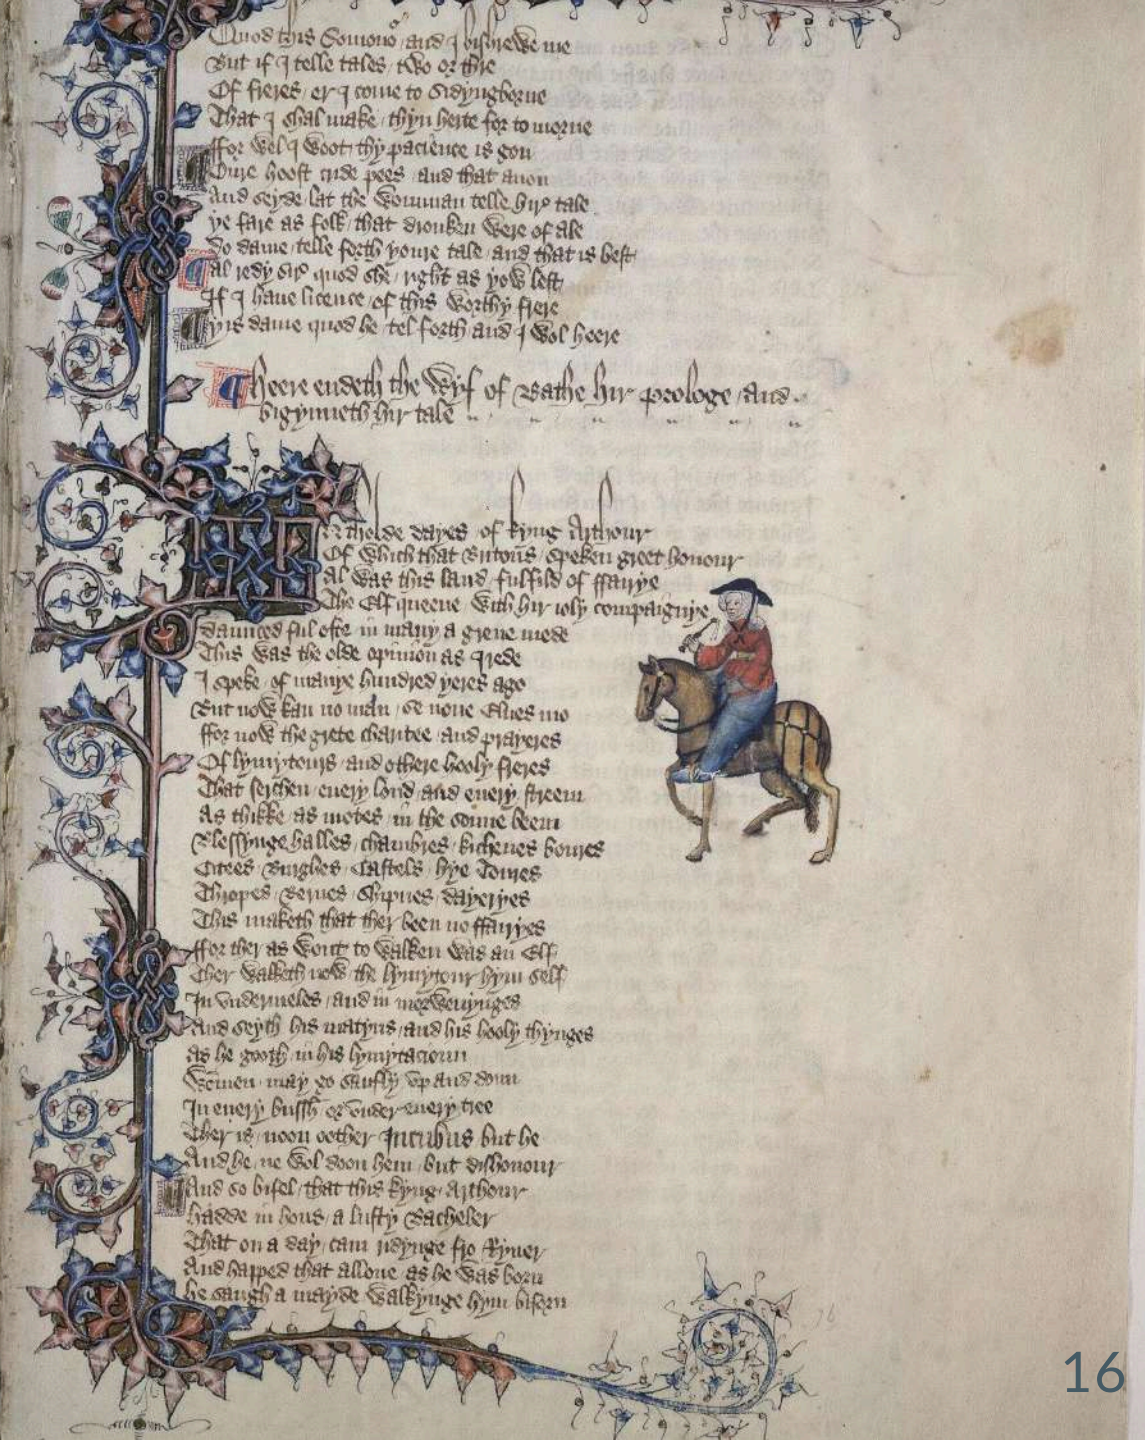 Quod this Somonor / and I bishrewe me
But if I telle tales / two or thre
Of freres / er I come to Sidyngborne
That I shal make / thyn herte for to morne
ffor wel I woot / thy pacience is gon
Oure hoost cride pees / and that anon
And seyde / lat the womman telle hire tale
ye fare as folk / that dronken were of ale
Do dame / telle forth youre tale / and that is best
Al redy sire quod she / right as yow lest
If I haue licence / of this worthy frere
yis dame quod he / tel forth and I wol heere
Heere endeth the Wyf of Bathe hir prologe / and
bigynneth hir tale
IN tholde dayes / of kyng Arthour
Of which that Britons / speken greet honour
Al was this land / fulfild of ffairye
The Elf queene / with hir ioly compaignye
daunced ful ofte / in many a grene mede
This was the olde opinion as I rede
I speke / of manye hundred yeres ago
But now kan no man / se none Elues mo
ffor now the grete charitee / and prayeres
Of lymytours / and othere hooly freres
That serchen / euery lond / and euery streem
As thikke / as motes / in the sonne beem
Blessynge halles / chambres / kichenes boures
Citees / Burghes / Castels / hye Toures
Thropes / Bernes / Shipnes / dayeryes
This maketh that ther been no ffairyes
ffor ther as wont to walken was an Elf
Ther walketh now / the lymytour hym self
In vndermeles / and in morwenynges
And seyth his matyns / and his hooly thynges
As he gooth / in his lymytacioun
Wommen / may go saufly vp and doun
In euery bussh / or vnder euery tree
Ther is / noon oother Incubus but he
And he / ne wol doon hem / but dishonour
And so bifel / that this kyng Arthour
hadde in hous / a lusty Bacheler
That on a day / cam ridynge fro Ryuer
And happed that allone / as he was born
he saugh a mayde walkynge hym biforn
16